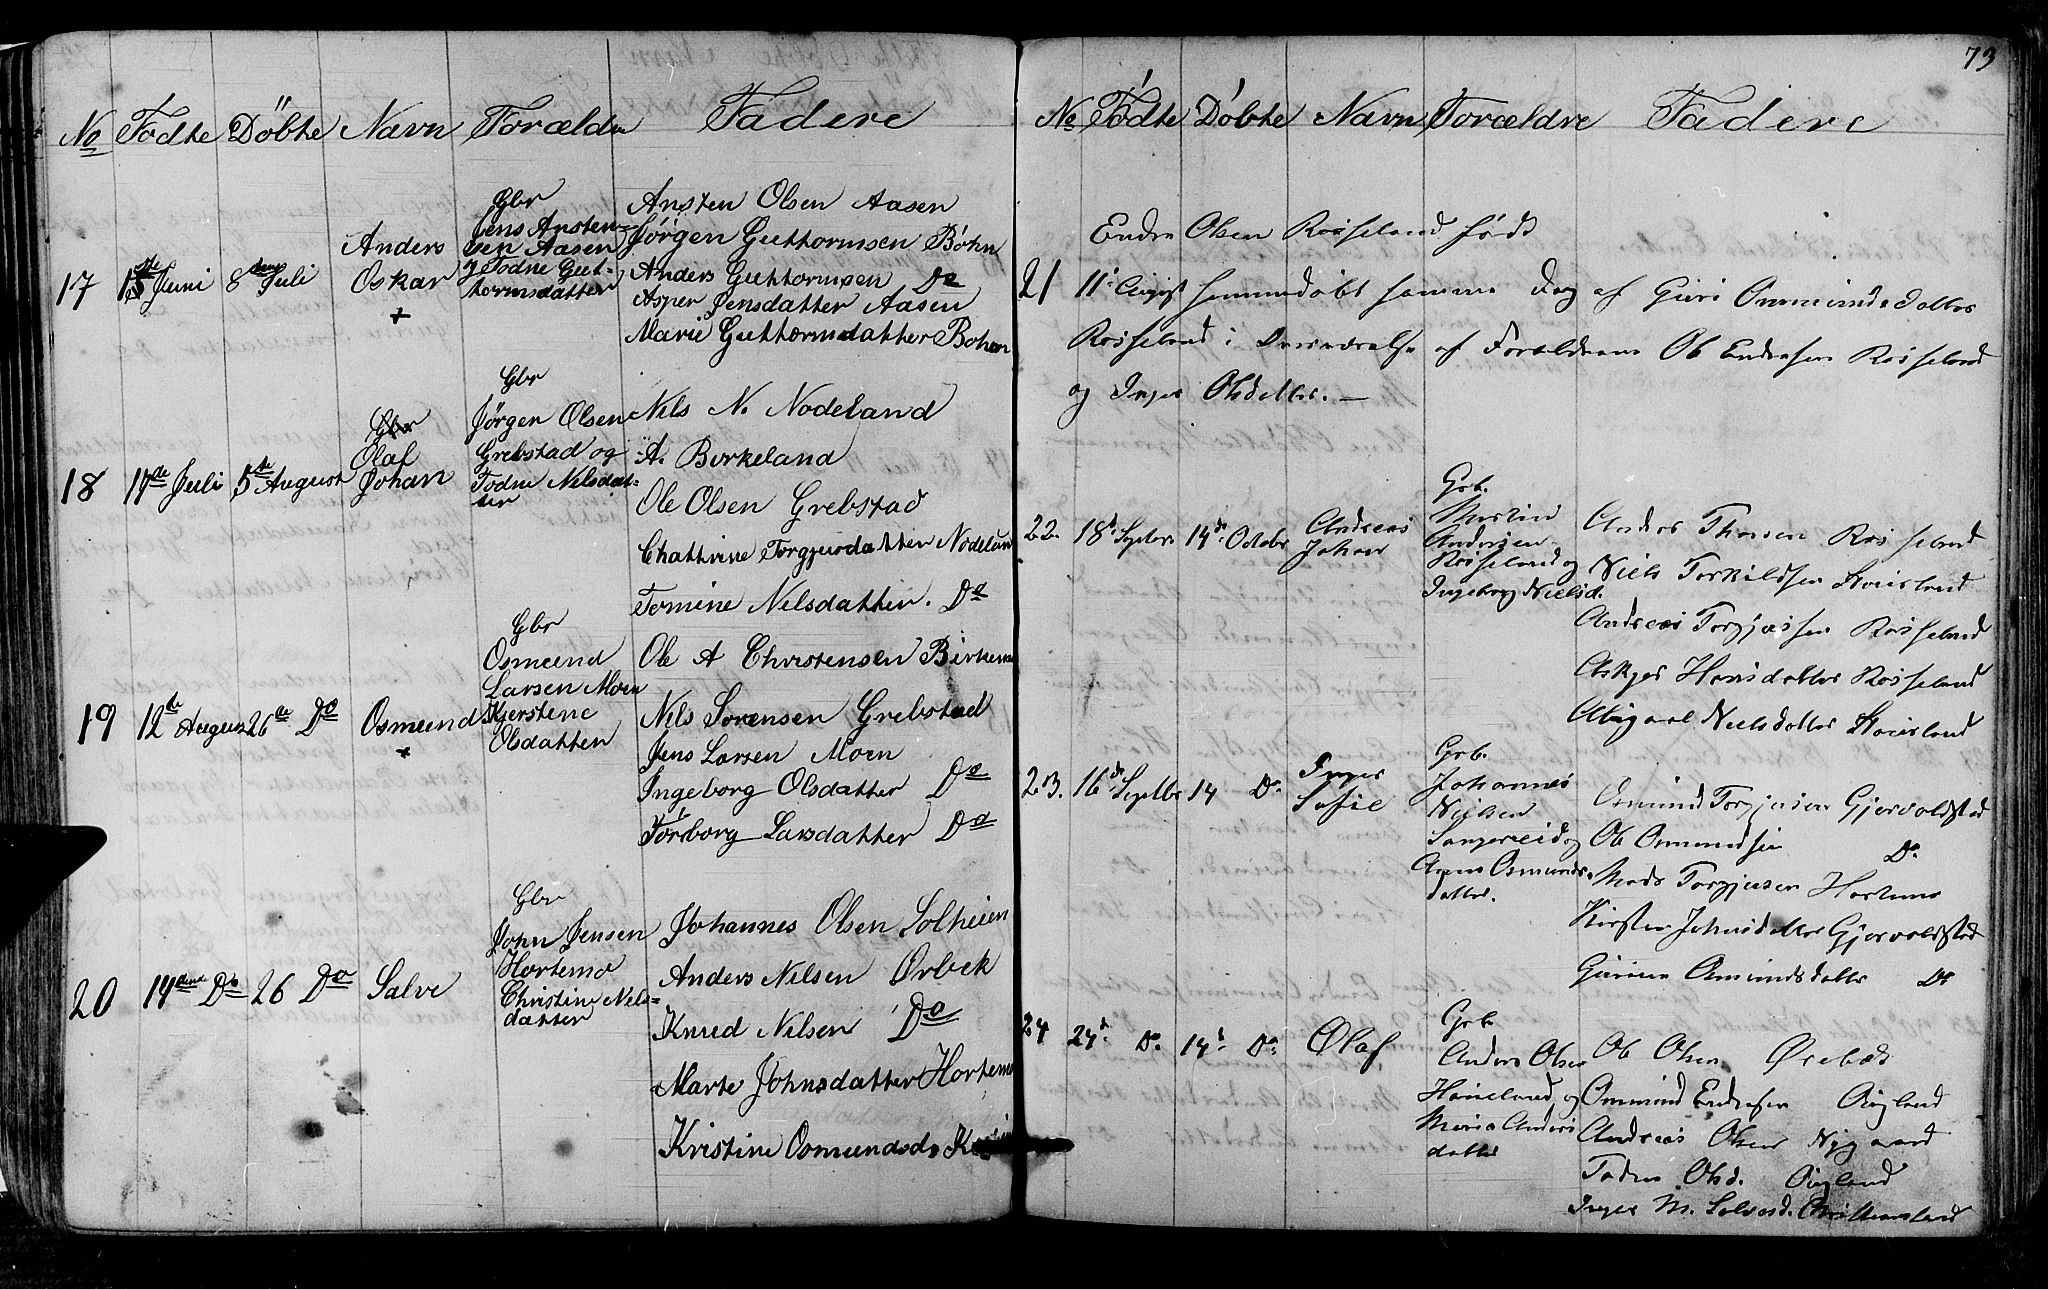 No Fødte Döbte Navn Forældre Faderе
17 15de Juni 8de Juli Anders Oskar +
Gbr Jens Ansten-
sen Aasen
og Todne Gut-
tormsdatter
Ansten Olsen Aasen
Jørgen Guttormsen Bóhn
Anders Guttormsen Do
Asper Jensdatter Aasen
Marie Guttormdatter Bohen
18 17de Juli 5de August Olaf Johan
Gbr
Jörgen Olsen
Grebstad og
Todne Nilsdat-
ter
Nils N. Nodeland
A. Birkeland
Ole Olsen Grebstad
Chattrine Torgjusdatter Nodelan
Tomine Nilsdatter. Do
19 12te August 26de Do Osmund +
Gbr
Osmund
Larsen Moen
Kjerstene
Olsdatter
Ole A Christensen Birkenes
Nils Sörensen Grebstad
Jens Larsen Moen
Ingeborg Olsdatter Do
Torborg Larsdatter Do
20 14dene Do 26 Do Salve
Gbr
John Jensen
Hortemo
Christine Nels-
datter
Johannes Olsen Solheien
Anders Nilsen Ørbek
Knud Nilsen Do
Marte Johnsdatter Hortemo
Kristine Osmundsd
73
No Födte Döbte Navn Forældre Fadere
Endre Olsen Røisseland født
21 11te August hjemmedøbt samme Dag af Guri Ommundsdatter
Røisseland i Overværelse af Forældrene Ole Endresen Røisseland
og Inger Olsdatter. —
22. 18de Septbr 14de Octobr Andreas Johan
Grb.
Martin
Andersen
Røisseland og
Ingeborg Nielsd.
Anders Thorsen Røisseland
Niels Torkildsen Stoveland
Andreas Torgjussen Røisseland
Askjer Hansdatter Røisseland
Abigael Nielsdatter Stoveland
23. 16de Septbr 14 Do Inger Sofie
Grb.
Johannes
Nielsen
Sangereid og
Anne Osmunds-
datter.
Osmund Torgjusen Gjervoldstad
Ole Ommundsen Do.
Mads Torgjusen Hortemo
Kirsten Johnsdatter Gjervoldstad
Gurine Osmundsdatter Do
24 24de Do. 14de Do. Olaf
Grb.
Anders Olsen
Høieland og
Maria Anders
datter
Ole Olsen Ørebæk
Ommund Endresen Øigland
Andreas Olsen Nygaard
Todne Olsd. Øigland
Inger M. Salvesd. Christiansand